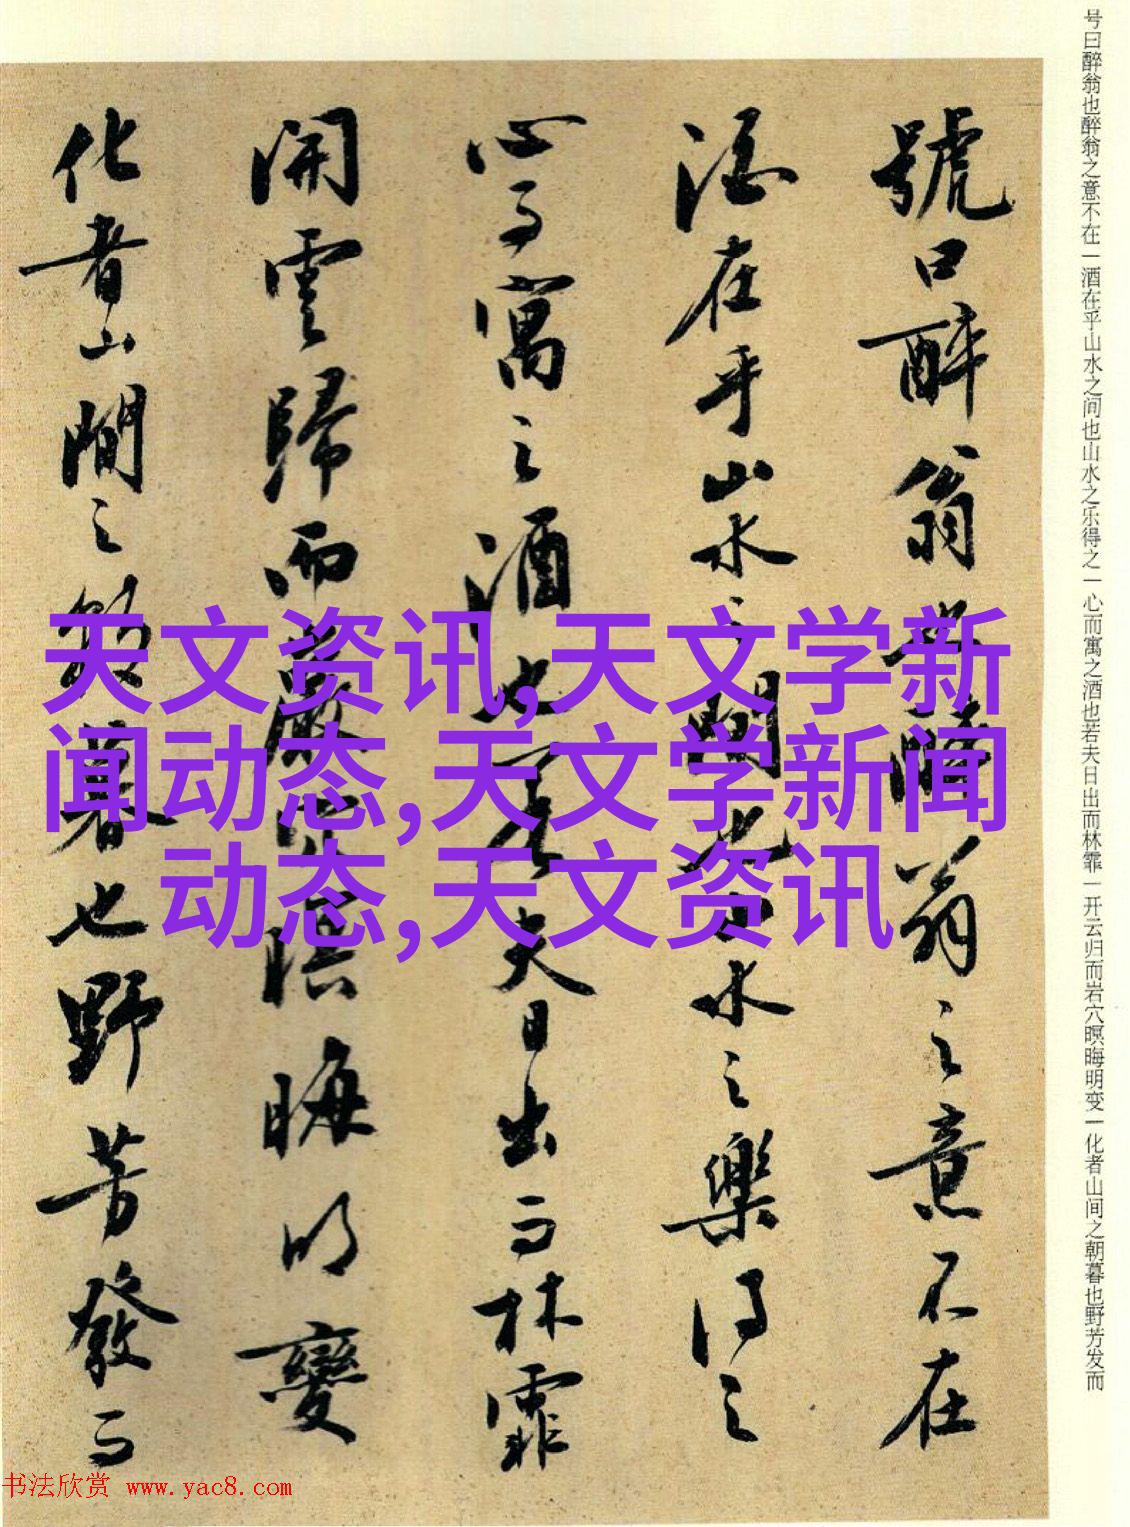 号曰醉翁也醉翁之意不在一酒在乎山水之间也山水之乐得之一心而寓之酒也若夫日出而林霏一开云归而岩穴暝晦明变一化者山间之朝暮也野芳发而
號曰醉翁也醉翁之意不在
酒在乎山水之間也山水之樂得之
心而寓之酒也若夫日出而林霏
開雲歸而巖穴暝晦明變
化者山間之朝暮也野芳發而
天文资讯,天文学新
闻动态,天文学新闻
动态,天文资讯
书法欣赏 www.yac8.com